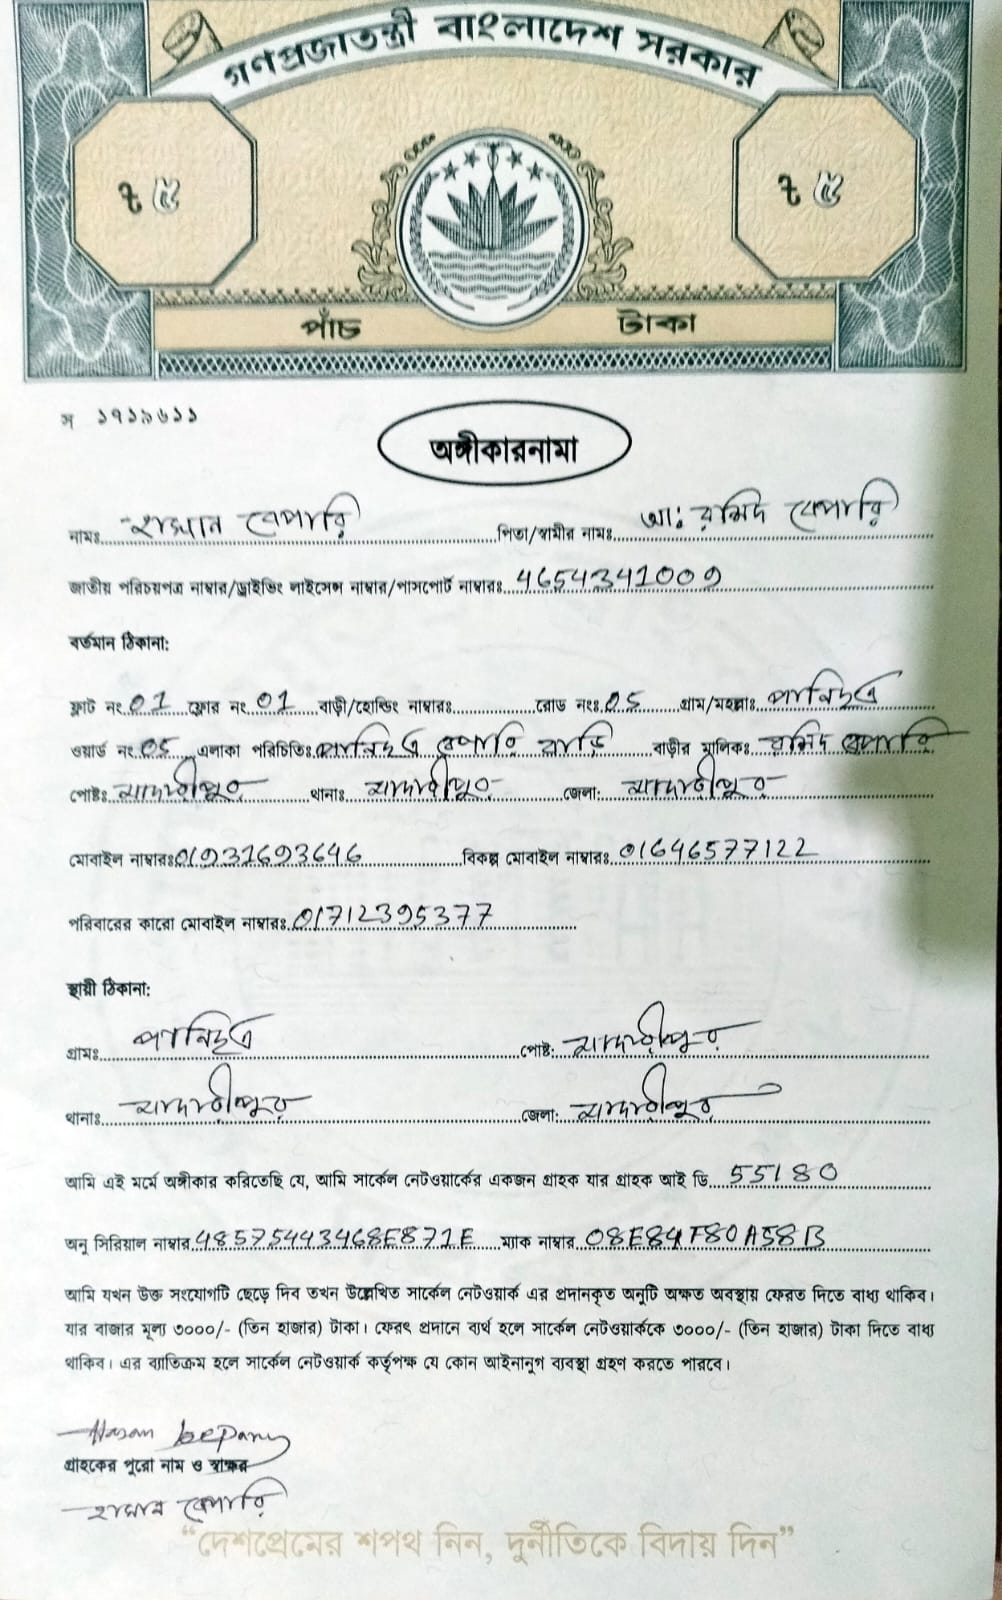 গণপ্রজাতন্ত্রী বাংলাদেশ সরকার
৳ ৫ ৳ ৫
পাঁচ টাকা
স ১৭১৯৬১১
অঙ্গীকারনামা
নামঃ হাসান বেপারি পিতা/স্বামীর নামঃ আঃ রশিদ বেপারি
জাতীয় পরিচয়পত্র নাম্বার/ড্রাইভিং লাইসেন্স নাম্বার/পাসপোর্ট নাম্বারঃ 4654341009
বর্তমান ঠিকানা:
ফ্লাট নং 01 ফ্লোর নং 01 বাড়ী/হোল্ডিং নাম্বারঃ রোড নংঃ 05 গ্রাম/মহল্লাঃ পানিছত্র
ওয়ার্ড নং 05 এলাকা পরিচিতিঃ পানিছত্র বেপারি বাড়ি বাড়ীর মালিকঃ রশিদ বেপারি
পোষ্টঃ মাদারীপুর থানাঃ মাদারীপুর জেলা: মাদারীপুর
মোবাইল নাম্বারঃ 01931693646 বিকল্প মোবাইল নাম্বারঃ 01646577122
পরিবারের কারো মোবাইল নাম্বারঃ 01712395377
স্থায়ী ঠিকানা:
গ্রামঃ পানিছত্র পোষ্ট: মাদারীপুর
থানাঃ মাদারীপুর জেলা: মাদারীপুর
আমি এই মর্মে অঙ্গীকার করিতেছি যে, আমি সার্কেল নেটওয়ার্কের একজন গ্রাহক যার গ্রাহক আই ডি 55180
অনু সিরিয়াল নাম্বার 48575443468E871E ম্যাক নাম্বার 08E84F80A58B
আমি যখন উক্ত সংযোগটি ছেড়ে দিব তখন উল্লেখিত সার্কেল নেটওয়ার্ক এর প্রদানকৃত অনুটি অক্ষত অবস্থায় ফেরত দিতে বাধ্য থাকিব।
যার বাজার মূল্য ৩০০০/- (তিন হাজার) টাকা। ফেরৎ প্রদানে ব্যর্থ হলে সার্কেল নেটওয়ার্ককে ৩০০০/- (তিন হাজার) টাকা দিতে বাধ্য
থাকিব। এর ব্যতিক্রম হলে সার্কেল নেটওয়ার্ক কর্তৃপক্ষ যে কোন আইনানুগ ব্যবস্থা গ্রহণ করতে পারবে।
Hasan bepary
গ্রাহকের পুরো নাম ও স্বাক্ষর
হাসান বেপারি
“দেশপ্রেমের শপথ নিন, দুর্নীতিকে বিদায় দিন”